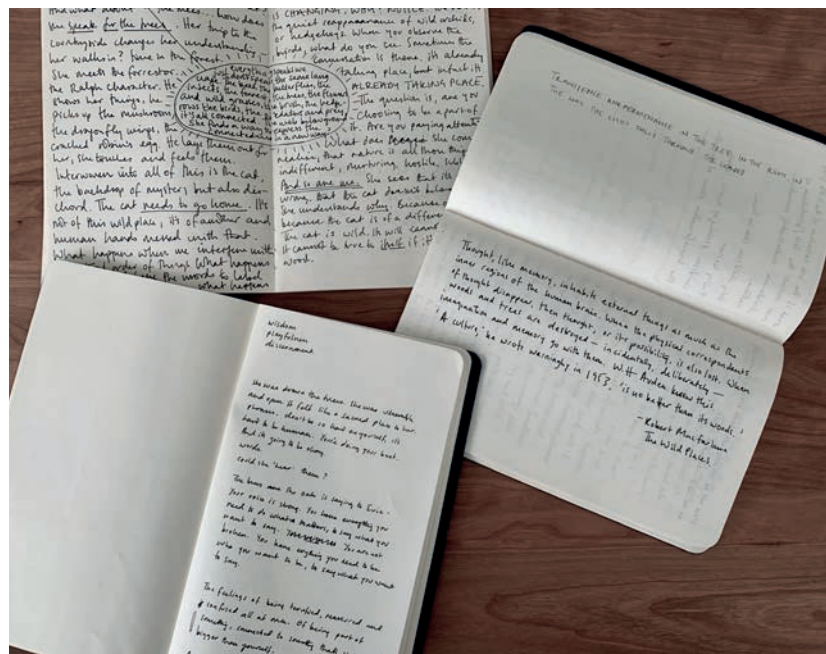 and what about the trees... how does
she speak for the trees. Her trip to the
countryside changes her understanding,
her walk in? time in the forest.
She meets the forrester.
the Ralph character. He
shows her things, he
picks up the mushroom
the dragonfly wings, the
cracked robin's egg. He lays them out for
her, she touches and feels them.
Interwoven into all of this is the cat,
the backdrop of mystery but also dis-
chord. The cat needs to go home. It's
not of this wild place, it's of another and
human hands messed with that.
What happens when we interfere with
order of things? What happens
the words to
what happens
everything speaks
just don't speak the same lang
insects, the butterflies, the
and wild grasses, the flowers
it's all connected
she finds a way
connected in a new way
is CHANGING, WHY?
the quiet reappearance of wild orchids,
or hedgehogs. When you observe the
birds, what do you see. Sometimes the
conversation is there, it's already
taking place, but in fact it's
ALREADY TAKING PLACE.
The question is, are you
choosing to be a part of
it. Are you paying attent
What does she com
realise, that nature is all those thing
indifferent, nurturing, hostile, subl
And so are we. She sees that it's
wrong, that the cat doesn't belon
She understands why. Because
because the cat is of a differe
The cat is wild. It will cann
It cannot be true to itself if it
wood.
TRANSIENCE AND PERMANENCE IN THE TREES, IN THE RIVER, IN
THE WAY THE LIGHT FALLS THROUGH THE LEAVES
Thought, like memory, inhabits external things as much as the
inner regions of the human brain. When the physical correspondents
of thought disappear, then thought, or its possibility, is also lost. When
woods and trees are destroyed — incidentally, deliberately —
imagination and memory go with them. W.H. Auden knew this.
'A culture,' he wrote warningly in 1953, 'is no better than its woods.'
- Robert Macfarlane
The Wild Places.
wisdom
playfulness
discernment
She was down the trees. She was vulnerable
and open. It felt like a sacred place to her.
phrases, don't be so hard on yourself, it's
hard to be human. You're doing your best.
And it's going to be okay.
words.
could she 'hear' them?
The trees and the oak is saying to Evie -
Your voice is strong. You have everything you
need to do what matters, to say what you
want to say. You are not
broken. You have everything you need to be
who you want to be, to say what you want
to say.
The feelings of being terrified, reassured and
confused all at once. Of being part of
something, connected to something that's
bigger than yourself.